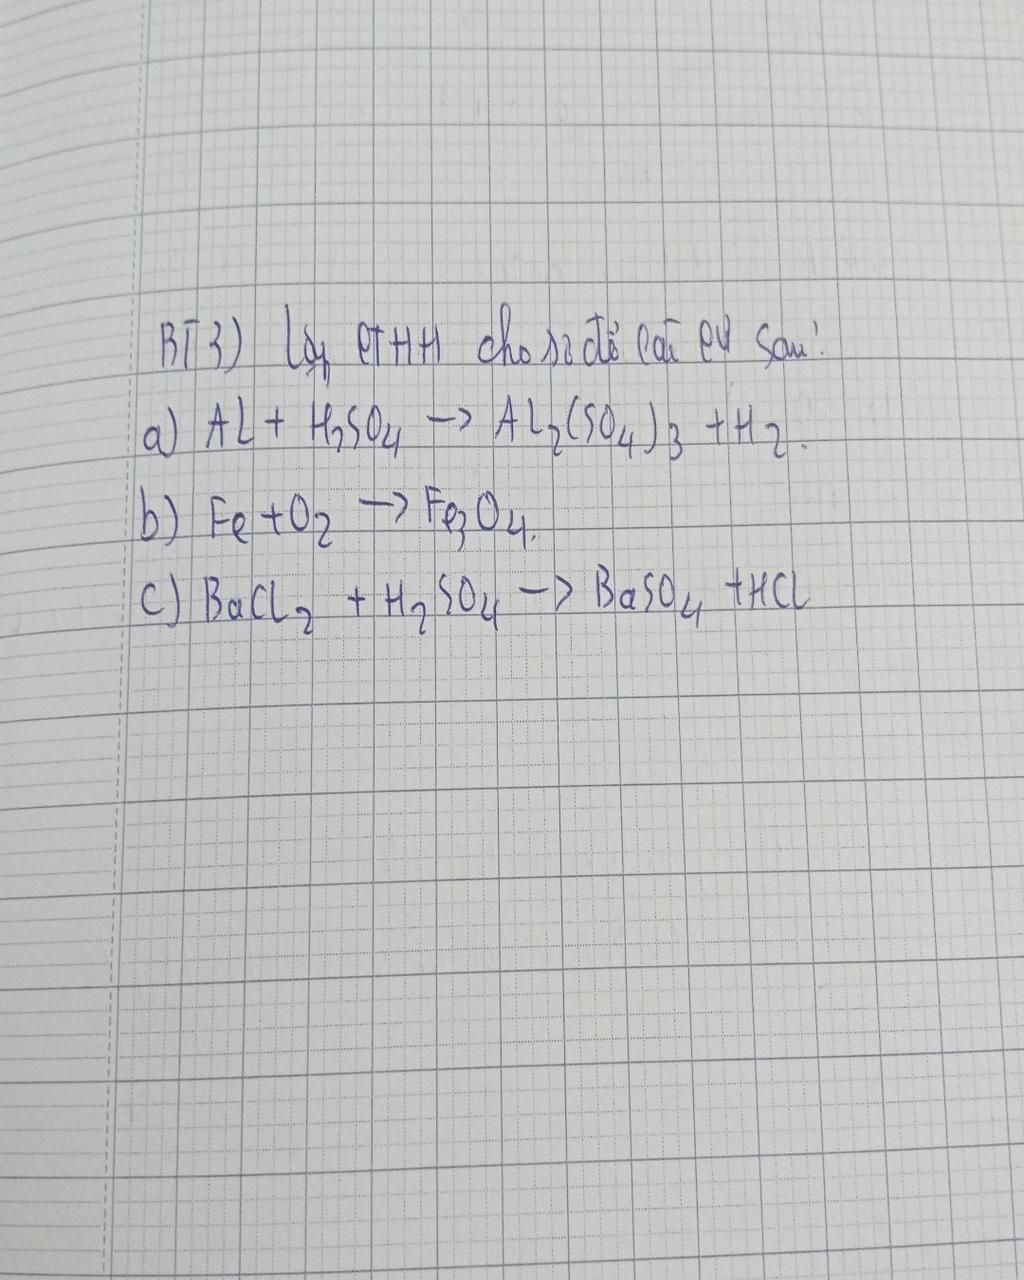 BT3) Lập PTHH cho sơ đồ các PƯ sau:
a) Al + H₂SO₄ -> Al₂(SO₄)₃ + H₂.
b) Fe + O₂ -> Fe₃O₄.
c) BaCl₂ + H₂SO₄ -> BaSO₄ + HCl